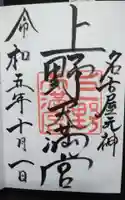 名古屋天神
上野天満宮
令和五年十月一日